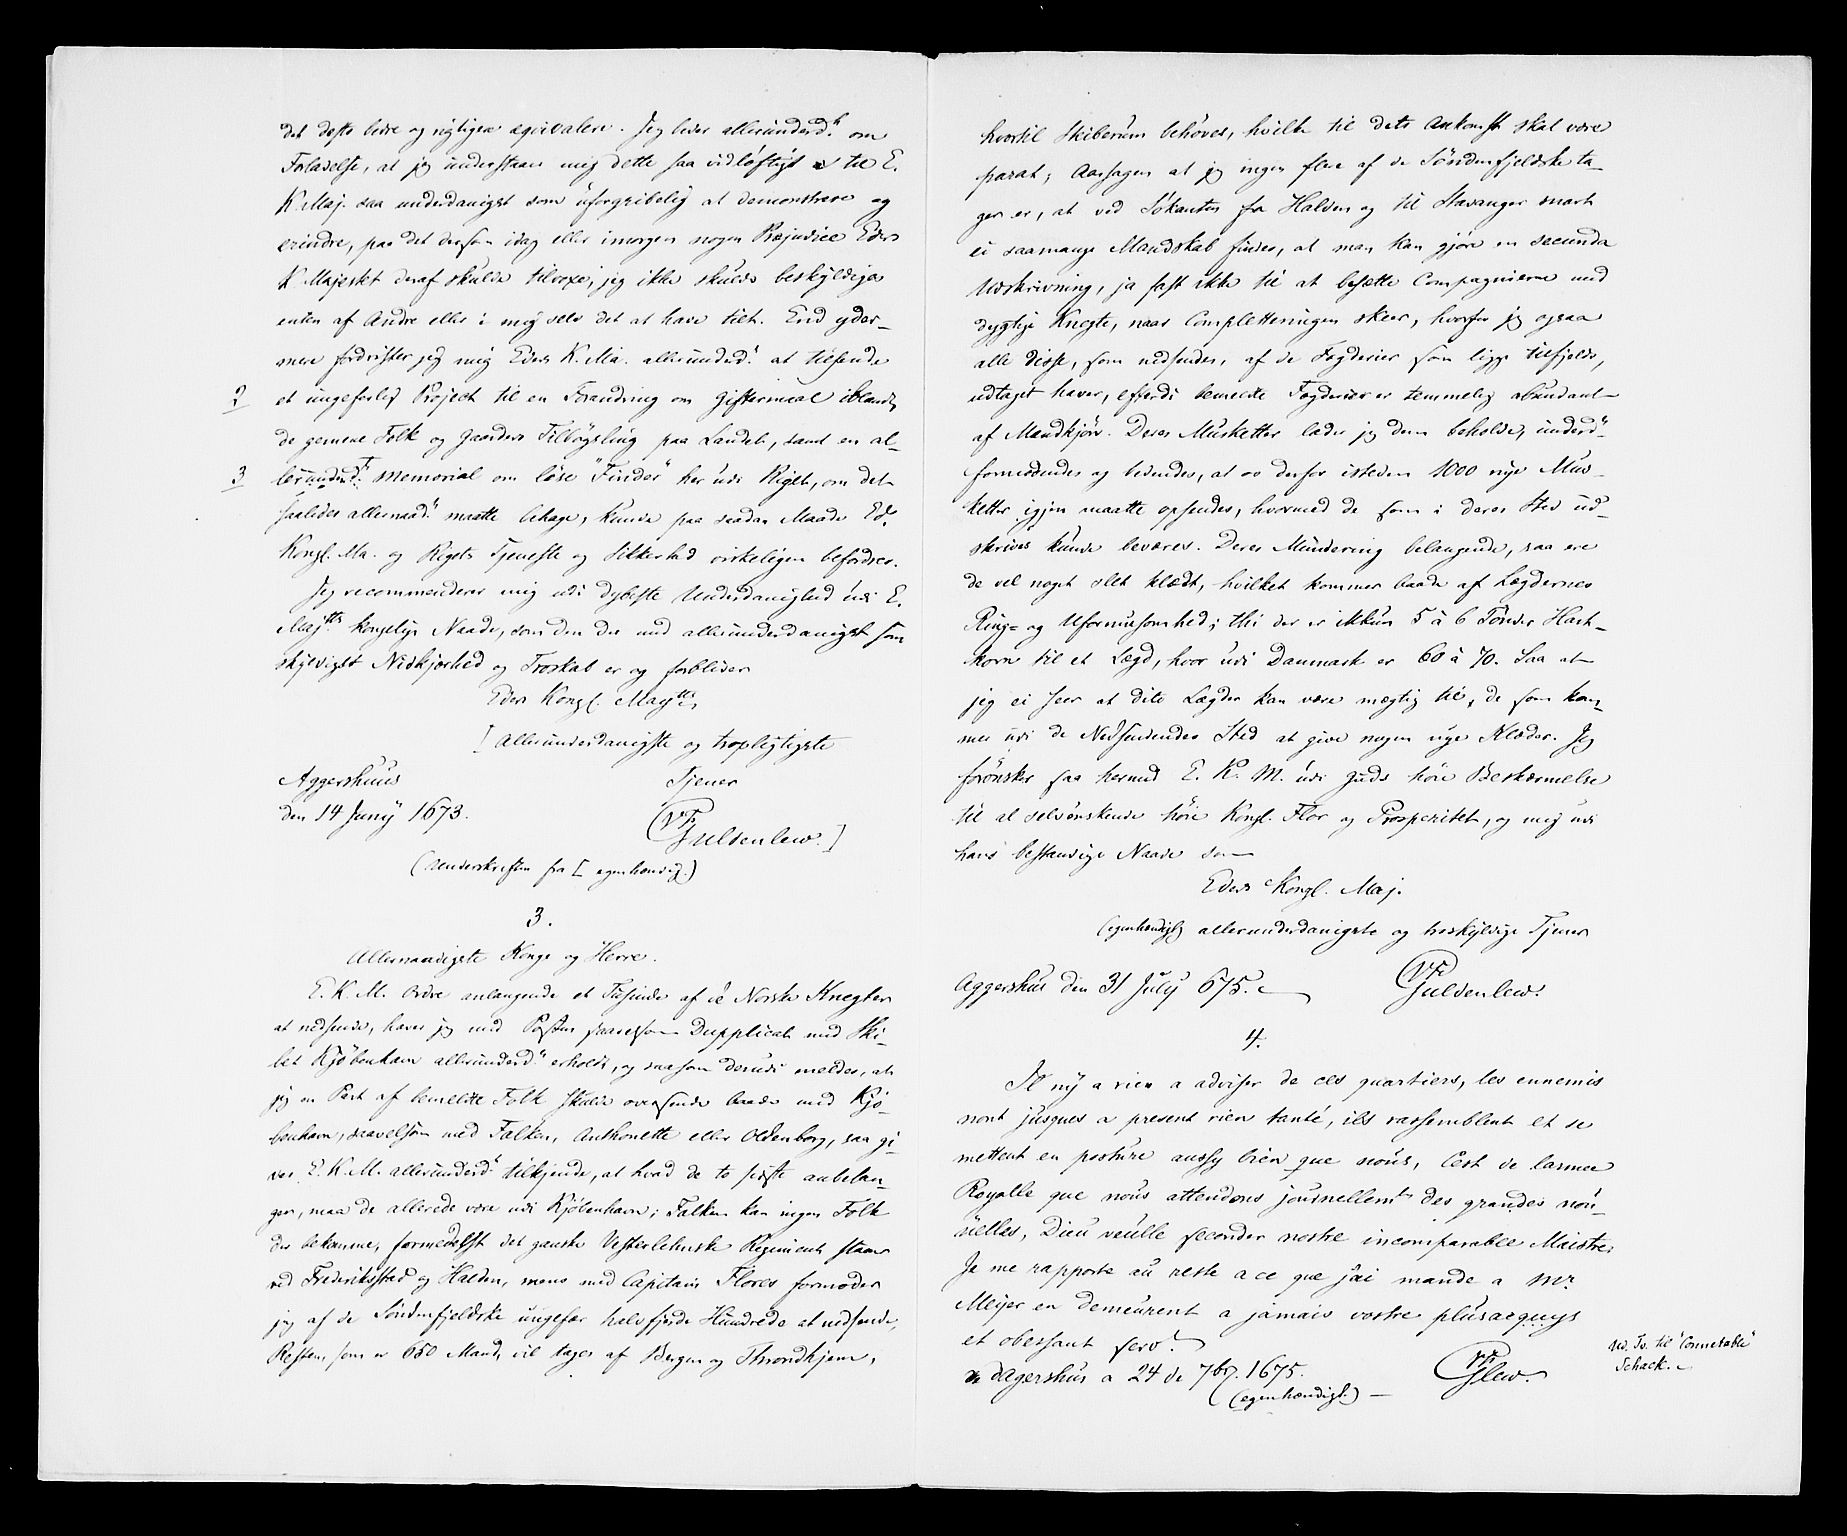 det desto bedre og rigtigere æqvivalere. Jeg beder allerunderd.st om
Forladelse, at jeg understaaer mig dette saa vidløftigt til E.
K. Maj. saa underdanigst som uforgribelig at demonstrere og
erindre, paa det dersom idag eller imorgen nogen Præjudice Eders
K Majestet deraf skulde tilvoxe, jeg ikke skulde beskyldiges
enten af Andre eller i mig selv det at have tiet. End yder-
mere fordrister jeg mig Eders K. Ma. allerunderd.t at tilsende
2 et ungeferlig Project til en Forandring om Giftermaal iblandt
de gemene Folk og Gaarders Tilbøgsling paa Landet, samt en al-
3 lerunderd.t Memorial om løse "Finder" her udi Riget, om det
saaledes allernaad.t maatte behage, kunde paa saadan Maade Ed.
Kongl. Ma. og Rigets Tjeneste og Sikkerhed virkeligen befordres.
Jeg recommenderer mig udi dybeste Underdanighed udi E.
Maj.tts kongelige Naade, som den der med allerunderdanigst som
skyldigst Nidkjærhed og Troskab er og forbliver
Eders Kongl. May.tts
[Allerunderdanigste og tropligtigste
Aggershuus Tjener
den 14 Juny 1673.
VF Guldenlew.]
(Underskriften fra [ egenhændig.)
3.
Allernaadigste Konge og Herre.
E. K. M. Ordre anlangende et Tusinde af de Norske Knegter
at nedsende, haver jeg med Posten saavelsom Dupplicat med Ski-
bet Kjøbenhavn allerunderd.t erholdt, og saasom derudi meldes, at
jeg en Part af bemeldte Folk skulde oversende baade med Kjø-
benhavn, saavelsom med Falken, Anthonette eller Oldenborg, saa gi-
ver E. K. M. allerunderd.t tilkjende, at hvad de to sidste anbelan-
ger, maa de allerede være udi Kjøbenhavn; Falken kan ingen Folk
der bekomme, formedelst det ganske Vesterlehnske Regiment staaer
ved Frederiksstad og Halden, mens med Capitain Flores formoder
jeg af de Søndenfjeldske ungefær halvfjerde Hundrede at nedsende,
Resten som er 650 Mand, vil tages af Bergen og Throndhjem,
hvortil Skiberum behøves, hvilke til dets Ankomst skal være
parat; Aarsagen at jeg ingen flere af de Søndenfjeldske ta-
ger er, at ved Søkanten fra Halden og til Stavanger snart
ei saamange Mandskab findes, at man kan gjøre en secunda
Udskrivning, ja fast ikke til at besætte Compagnierne med
dygtige Knegte, naar Completteringen skeer, hvorfor jeg ogsaa
alle disse, som nedsendes, af de Fogderier som ligge tilfjelds,
udtaget haver, efterdi bemeldte Fogderier er temmelig abundant
af Mandkjøn. Deres Musketter lader jeg dem beholde, underd.st
formodendes og bedendes, at os derfor isteden 1000 nye Mus-
ketter igjen maatte opsendes, hvormed de som i deres Sted ud-
skrives kunde beværes. Deres Mundering belangende, saa ere
de vel noget slet klædt, hvilket kommer baade af Lægdernes
Ring= og Uformuesomhed; thi der er ikkun 5 à 6 Tønder Hart-
korn til et Lægd, hvor udi Danmark er 60 à 70. Saa at
jeg ei seer at dito Lægder kan være mægtig til, de som kom-
mer udi de Nedsendendes Sted at give nogen nye Klæder. Jeg
forønsker saa hermed E. K. M. udi Guds høie Beskærmelse
til al selvønskende høie Kongl. Flor og Prosperitet, og mig udi
hans bestandige Naade som
Eders Kongl. Maj.
(egenhændigt) allerunderdanigste og troskyldige Tjener
Aggershus den 31 July 675. VF Guldenlew.
4.
Il ny a rien a adviser de ces quartiers, les ennemis
nont jusques a present rien tanté, ils rassemblent et se
mettent en posture aussy bien que nous, Cest de larmee
Royalle que nous attendons journellemt des grandes nou-
uelles, Dieu veulle seconder nostre incomparable Maistre.
Je me rapporte au reste a ce que j'ai mande a Mr.
Meijer en demeurent a jamais vostre plusacquys
et obessant serv.t
dagershus a 24 de 7br. 1675. VF Glew.
(egenhændigt.)
Ud. Tv. til "Connetable"
Schack.